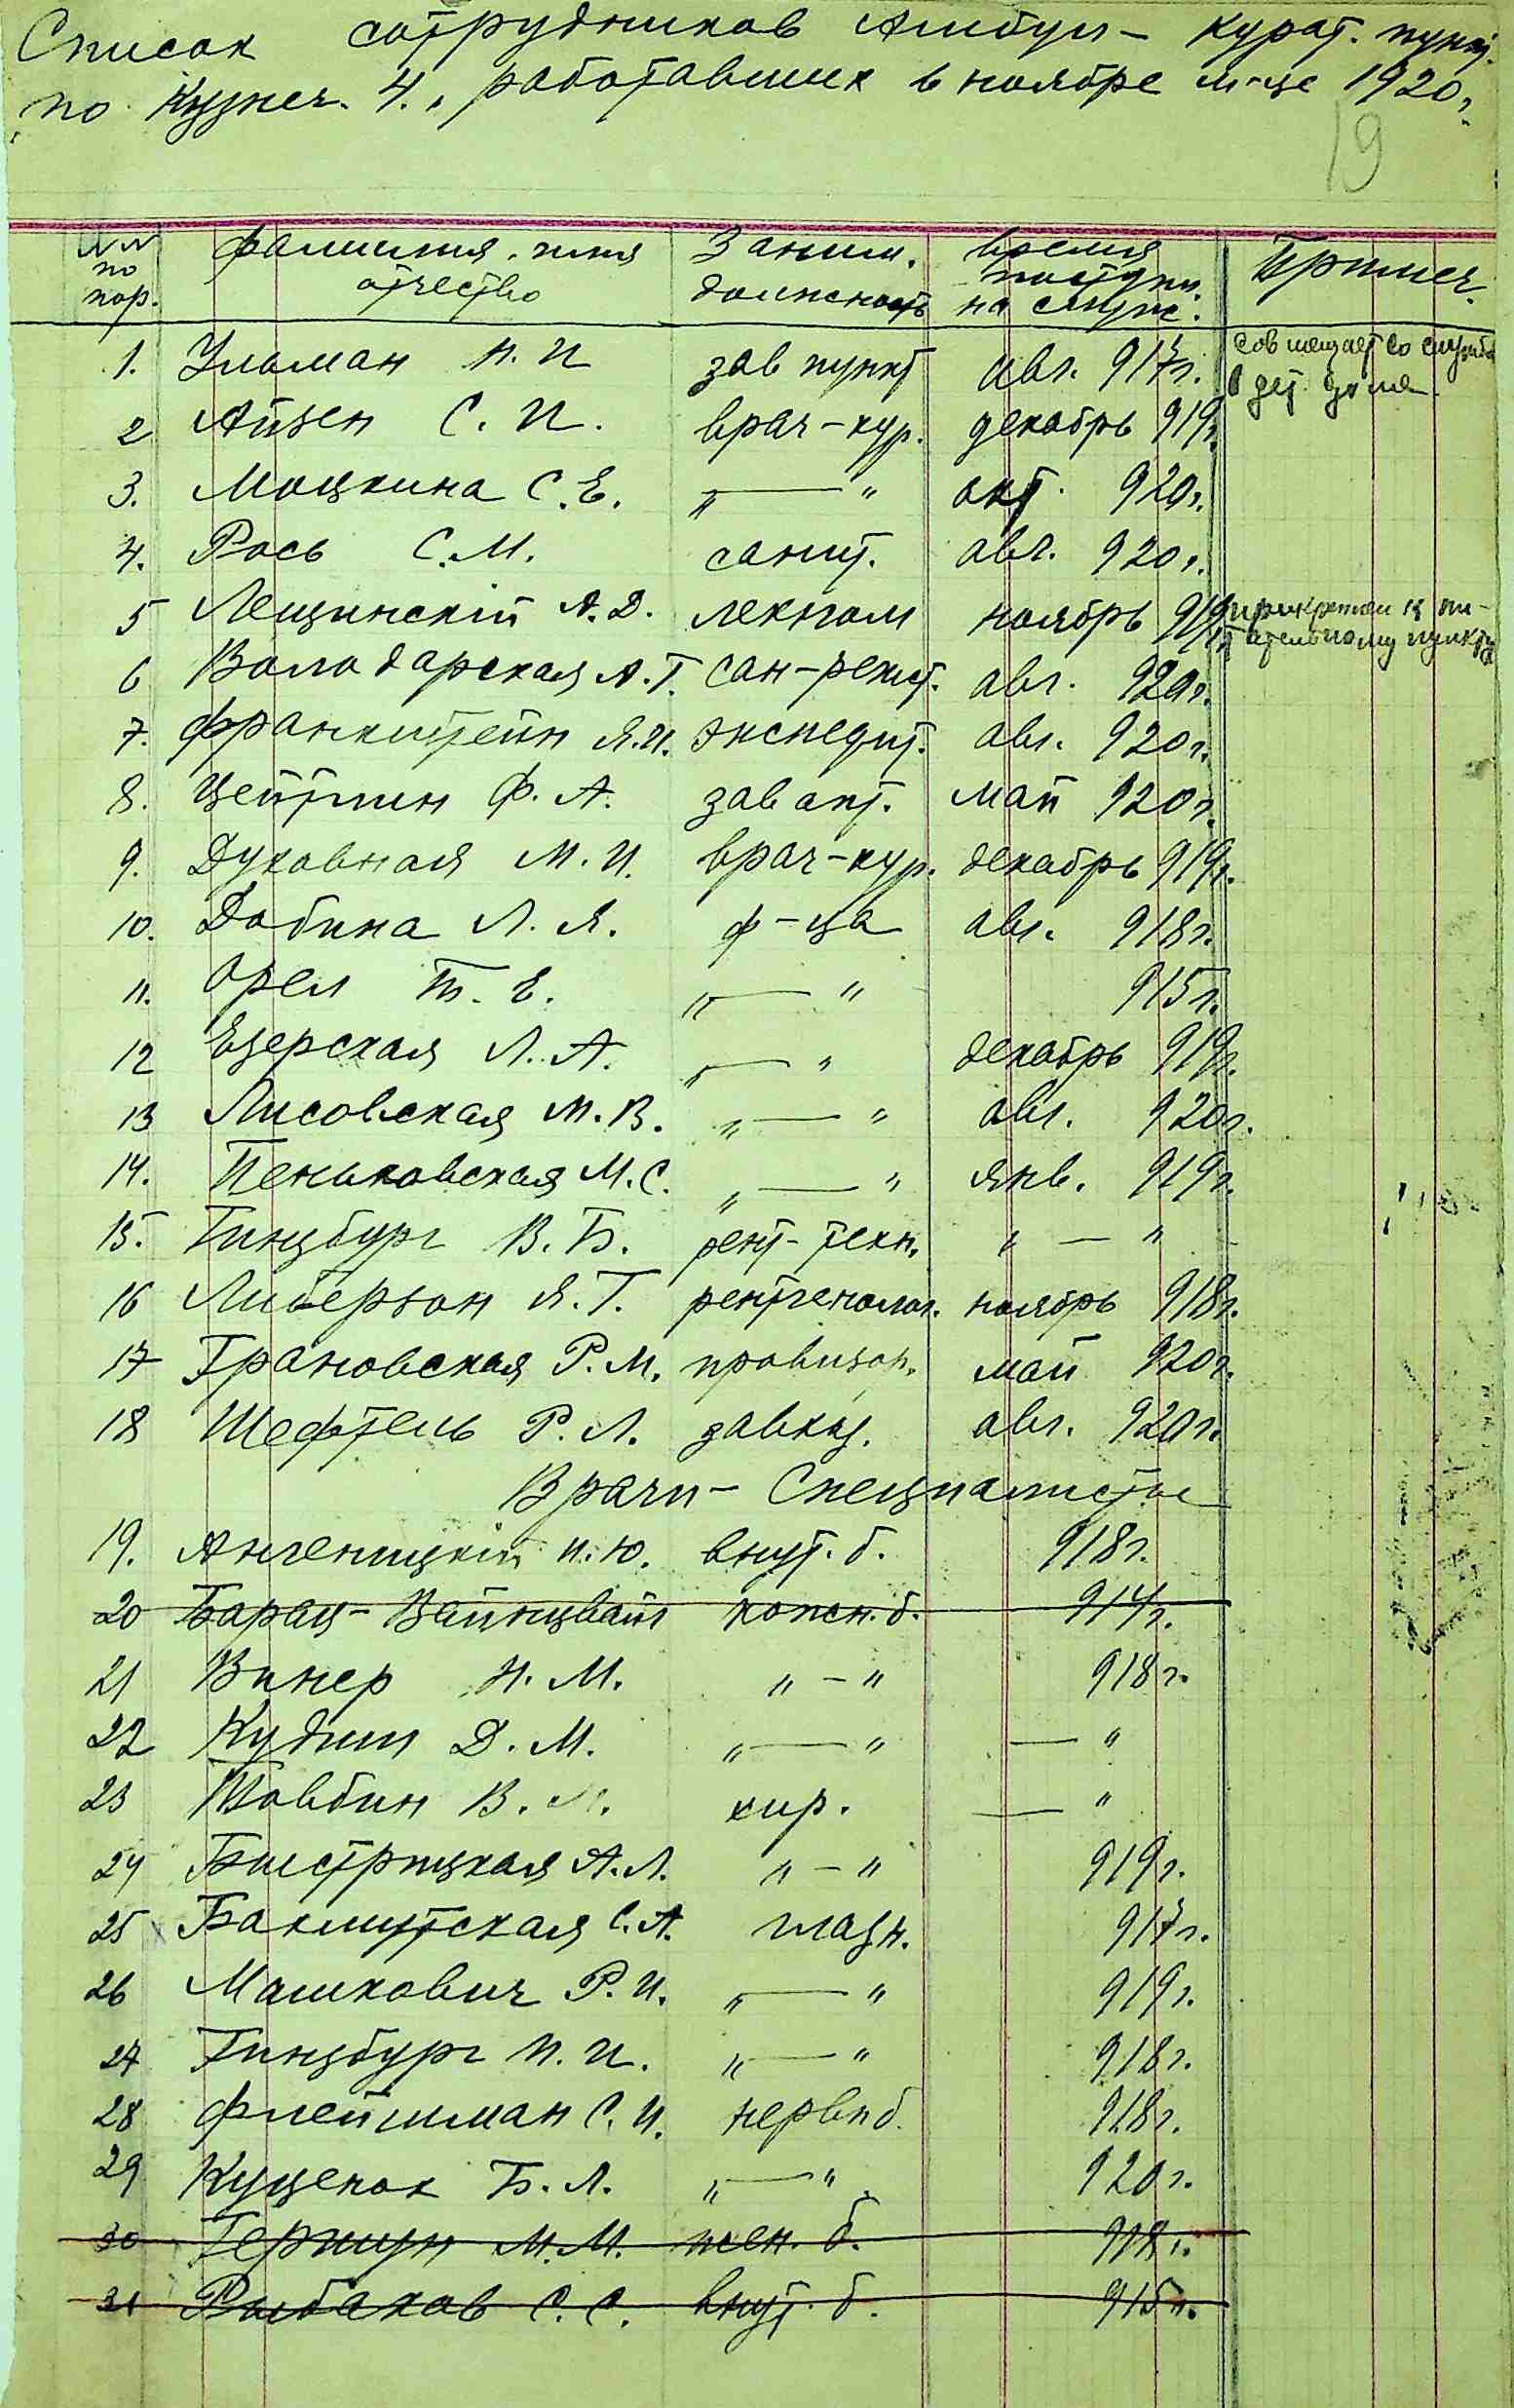 Список сотрудников Амбул- курат. пункт.
по Кузнеч. 4., работавших в ноябре м-це 1920г.
19
№№ по пор. фамилия, имя отчество Заним. должность время поступл. на служ. Примеч.
1. Ульман Н. И зав пункт авг. 917г. совмещает со службой в дет. доме
2 Айзен С. И. врач-кур. декабрь 919г.
3. Моцкина С. Е. „ — " окт. 920г.
4. Рось С. М. санит. авг. 920г.
5 Лещинскій А. Д. лекпом ноябрь 919г. прикреплен к питательному пункту
6 Володарская А. Г. сан-регист. авг. 920г.
7. Франкштейн Я. И. экспедит. авг. 920г.
8. Цейтлин Ф. А. зав апт. май 920г.
9. Духовная М. И. врач-кур. декабрь 919г.
10. Добина Л. Я. ф-ца авг. 918г.
11. Орел Т. Е. „ — " 915г.
12 Езерская Л. А. „ — " декабрь 919г.
13 Лисовская М. В. „ — " авг. 920г.
14. Пеньковская М. С. „ — " янв. 919г.
15. Гинзбург В. Б. рент-техн. „ — "
16 Либерзон Я. Г. рентгенолог. ноябрь 918г.
17 Грановская Р. М. провизор. май 920г.
18 Шефтель Р. Л. завхоз. авг. 920г.
Врачи - Специалисты
19. Ангеницкій И. Ю. внут. б. 918г.
20 Барац-Вайнцвайг кожн. б. 914г.
21 Винер Н. М. „ - " 918г.
22 Кудиш Д. М. „ — " — "
23 Товбин В. хир. — "
24 Быстрицкая А. Л. „ - " 919г.
25 Бахмутская С. А. глазн. 917г.
26 Машкович Р. И. „ — " 919г.
27 Гинзбург И. И. „ — " 918г.
28 Флейшман С. И. нервн б. 918г.
29 Куценок Б. Л. „ — " 920г.
30 Гершун М. М. жен. б. 918г.
31 Рыбаков С. С. внут. б. 915г.